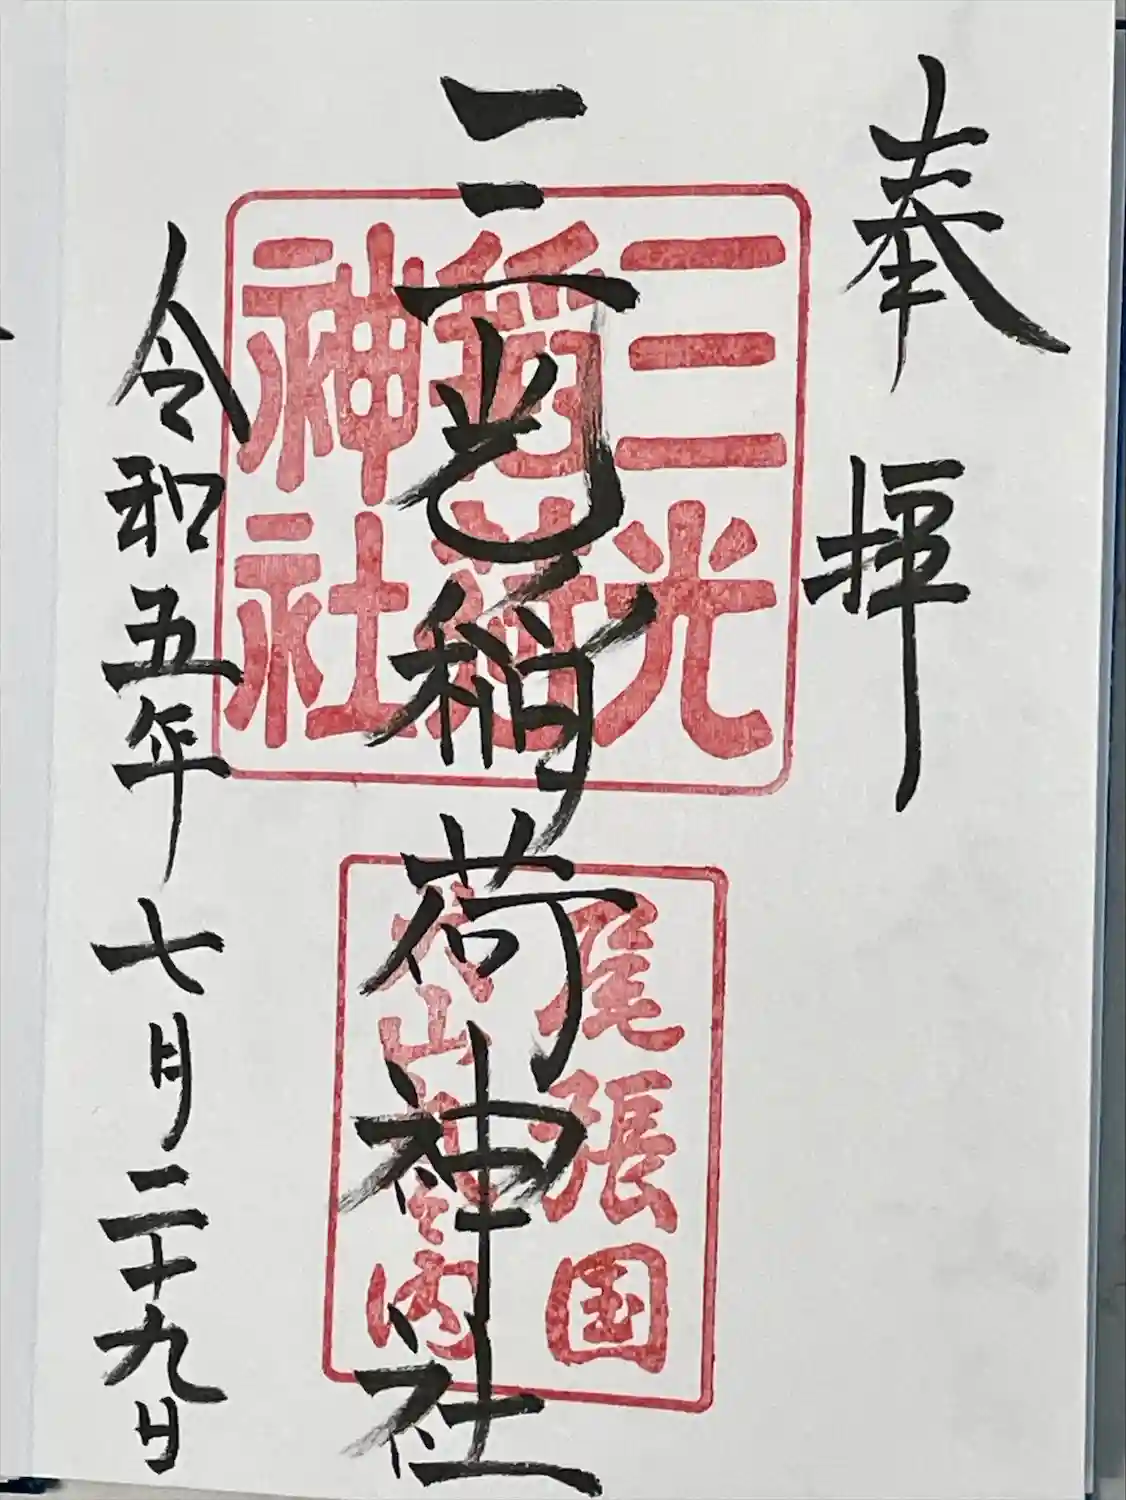 奉拝
三光稲荷神社
令和五年七月二十九日
三光
稲荷
神社
尾張国
犬山城内